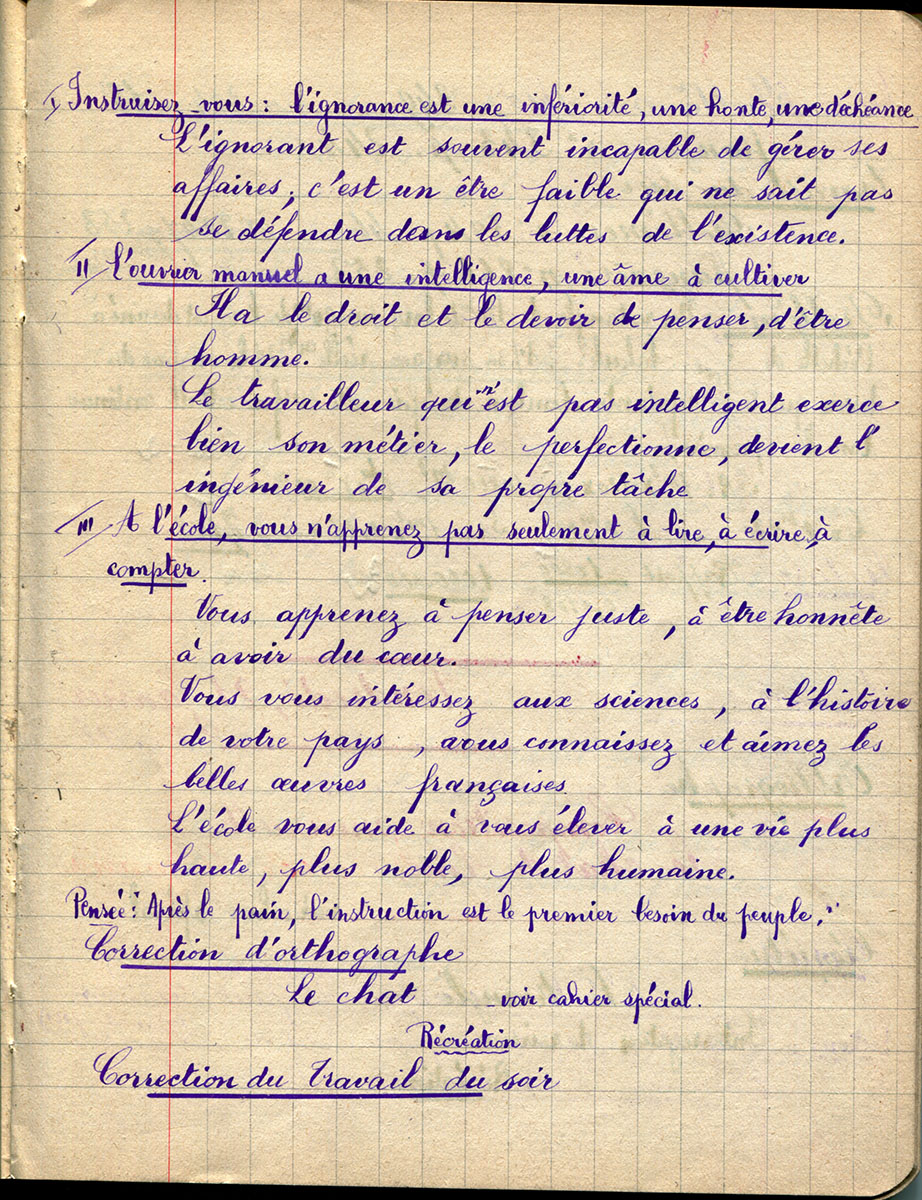 I Instruisez-vous : l'ignorance est une infériorité, une honte, une déchéance
L'ignorant est souvent incapable de gérer ses
affaires, c'est un être faible qui ne sait pas
se défendre dans les luttes de l'existence.
II L'ouvrier manuel a une intelligence, une âme à cultiver
Il a le droit et le devoir de penser, d'être
homme.
Le travailleur qui n'est pas intelligent exerce
bien son métier, le perfectionne, devient l'
ingénieur de sa propre tâche
III A l'école, vous n'apprenez pas seulement à lire, à écrire, à
compter.
Vous apprenez à penser juste, à être honnête
à avoir du cœur.
Vous vous intéressez aux sciences, à l'histoire
de votre pays, vous connaissez et aimez les
belles œuvres françaises.
L'école vous aide à vous élever à une vie plus
haute, plus noble, plus humaine.
Pensée : "Après le pain, l'instruction est le premier besoin du peuple."
Correction d'orthographe
Le chat voir cahier spécial.
Récréation
Correction du travail du soir